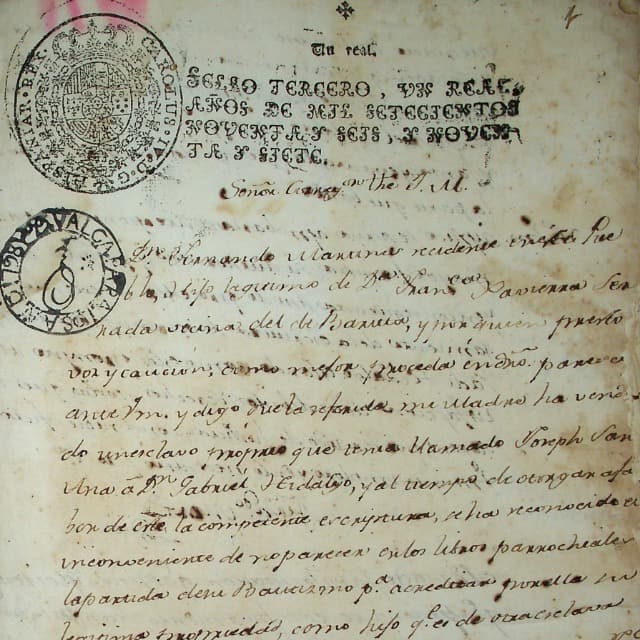 Un real.
SELLO TERCERO, VN REAL,
AÑOS DE MIL SETECIENTOS
NOVENTA Y SEIS, Y NOVEN
TA Y SIETE.
CAROLUS IV D G HISPANIAR REX
VALGA PARA
Señor
Dn. Fernando Martines recidente en este Pue
blo, Hijo legitimo de Da. Fran.ca Ser
rada vecina del de y por quien presto
voz y caucion, como mejor proceda en dro. paresco
ante Vm. y digo que la referida mi Madre ha vendi
do un esclavo proprio que tenia llamado Joseph San
à Dn. Gabriel Hidalgo, y al tiempo de otorgar a fa
bor de este la competente escriptura, se ha reconocido el
inconveniente de no parecer en los libros parrochiales
la partida de su Bautismo pa. acreditar por ella su
legitima propiedad, como hijo qe. es de otra esclava